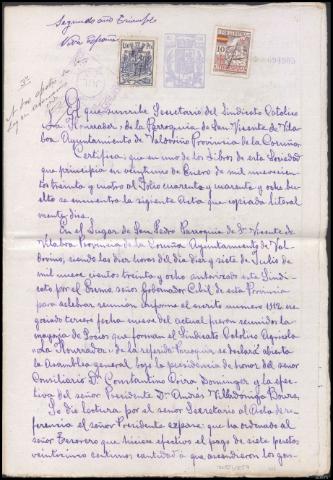 Segundo año Triunfal
Viva España
El que suscribe Secretario del Sindicato Catolico
"La Honradez", de la Parroquia de San Vicente de Vila-
boa Ayuntamiento de Valdoviño Provincia de la Coruña
Certifica, que en uno de los Libros de esta Sociedad
que principia en veintiuno de Enero de mil novecien-
tos treinta y cuatro al Folio cuarenta y cuarenta y ocho vuel-
to se encuentra la siguiente Acta que copiada literal-
mente dice:
En el Lugar de San Pedro Parroquia de Sn Vicente de
Vilaboa Provincia de la Coruña Ayuntamiento de Val-
doviño, siendo las diez horas del dia diez y siete de Julio de
mil nueve cientos treinta y ocho autorizado este Sindi-
cato por el Excmo, señor Gobernador Civil de esta Provincia
para celebrar reunión informe el escrito numero 1912, ne-
gociado tercero fecha nueve del actual fueron reunidos la
mayoria de Socios que forman el Sindicato Catolico Agricola
"La Honradez" de la referida Parroquia se declaró abierta
la Asamblea general bajo la presidencia de honor del señor
Consiliario Dn Constantino Neira Dominguez y la efec-
tiva del señor Presidente Dn Andrés Villadonga Bours,
Se dio lectura por el señor Secretario al Acta de re-
ferencia el señor Presidente expuso: que ha ordenado al
señor Tesorero que hiciese efectivo el pago de siete pesetas
veinticinco centimos; cantidad a que ascendieron los gas-